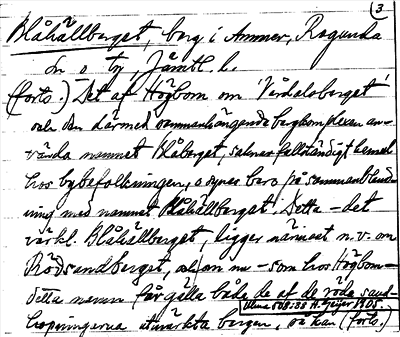 (3
Blåhällberget, berg i Ammer, Ragunda
sn o tg, Jämtl. l.
(forts.) Det af Högbom om 'Värdalsberget'
och den därmed sammanhängande bergkomplexen an-
vända namnet Blåberget, saknar fullständigt hemul
hos bybefolkningen, o synes bero på sammanbland-
ning med namnet Blåhällberget. Detta – det
värkl. Blåhällberget, ligger närmast n.v. om
Rödsandberget, och om nu – som hos Högbom –
detta namn får gälla både de af de röda sand-
Ulma 508:38 H. Geijer 1905.
hoperingarna utmärkta bergen, så kan (forts.)